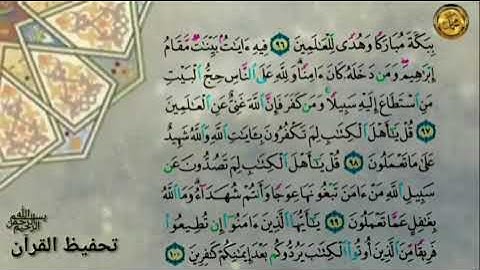 بِبَكَّةَ مُبَارَكًا وَهُدًى لِّلْعَٰلَمِينَ ٩٦ فِيهِ ءَايَٰتٌۢ بَيِّنَٰتٌ مَّقَامُ
إِبْرَٰهِيمَ ۖ وَمَن دَخَلَهُۥ كَانَ ءَامِنًا ۗ وَلِلَّهِ عَلَى ٱلنَّاسِ حِجُّ ٱلْبَيْتِ
مَنِ ٱسْتَطَاعَ إِلَيْهِ سَبِيلًا ۚ وَمَن كَفَرَ فَإِنَّ ٱللَّهَ غَنِىٌّ عَنِ ٱلْعَٰلَمِينَ
٩٧ قُلْ يَٰٓأَهْلَ ٱلْكِتَٰبِ لِمَ تَكْفُرُونَ بِـَٔايَٰتِ ٱللَّهِ وَٱللَّهُ شَهِيدٌ
عَلَىٰ مَا تَعْمَلُونَ ٩٨ قُلْ يَٰٓأَهْلَ ٱلْكِتَٰبِ لِمَ تَصُدُّونَ عَن
سَبِيلِ ٱللَّهِ مَنْ ءَامَنَ تَبْغُونَهَا عِوَجًا وَأَنتُمْ شُهَدَآءُ ۗ وَمَا ٱللَّهُ
بِغَٰفِلٍ عَمَّا تَعْمَلُونَ ٩٩ يَٰٓأَيُّهَا ٱلَّذِينَ ءَامَنُوٓا۟ إِن تُطِيعُوا۟
فَرِيقًا مِّنَ ٱلَّذِينَ أُوتُوا۟ ٱلْكِتَٰبَ يَرُدُّوكُم بَعْدَ إِيمَٰنِكُمْ كَٰفِرِينَ ١٠٠
بسم الله الرحمن الرحيم
تحفيظ القرآن